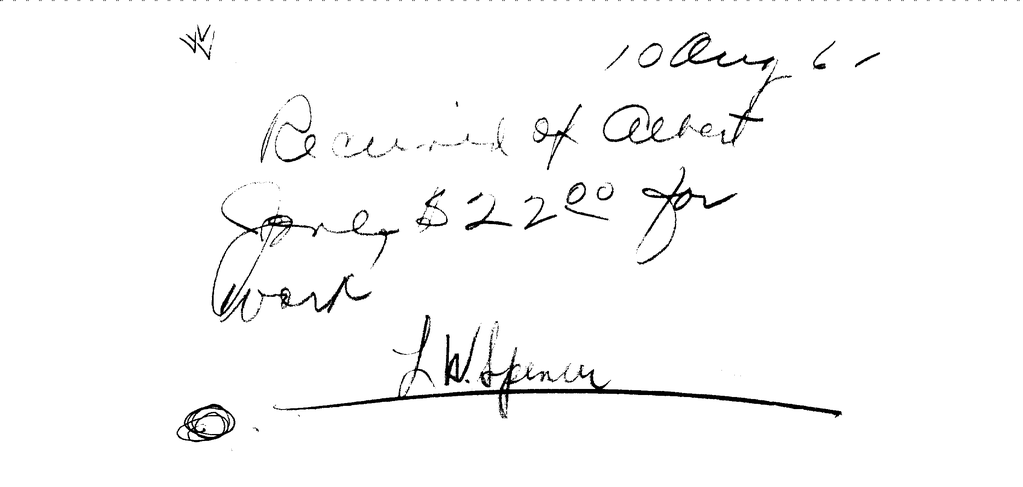 10 Aug 61
Received of Albert
Jones $22.00 for
work
L W. Spencer